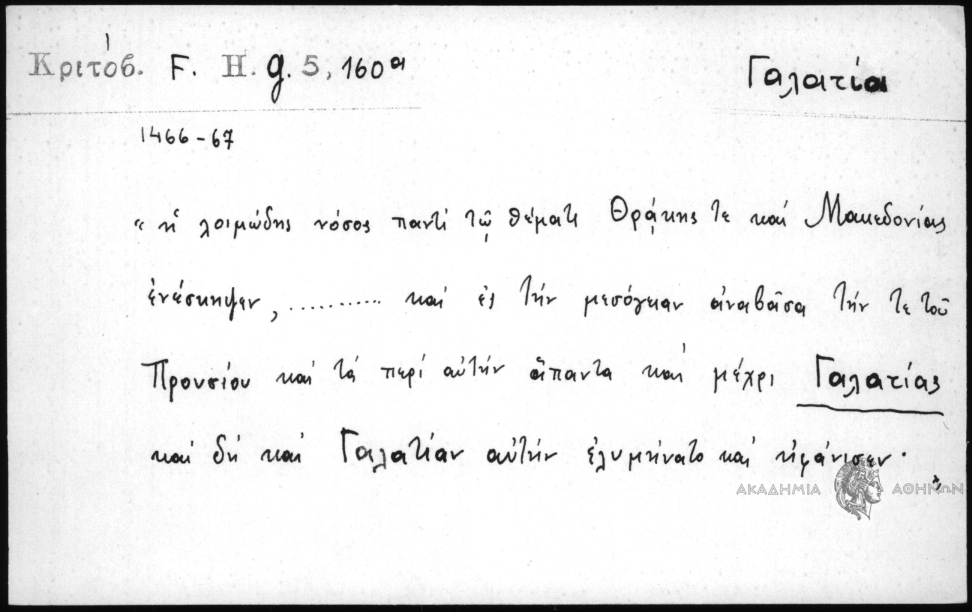 Κριτόβ. F. H. g. 5, 160α
Γαλατία
1466-67
"ἡ λοιμώδης νόσος παντὶ τῷ θέματι Θρᾴκης τε καὶ Μακεδονίας
ἐνέσκηψεν, .......... καὶ ἐς τὴν μεσόγειαν ἀναβᾶσα τήν τε τοῦ
Προυσίου καὶ τὰ περὶ αὐτὴν ἅπαντα καὶ μέχρι Γαλατίας
καὶ δὴ καὶ Γαλατίαν αὐτὴν ἐλυμήνατο καὶ ἠφάνισεν.
ΑΚΑΔΗΜΙΑ ΑΘΗΝΩΝ